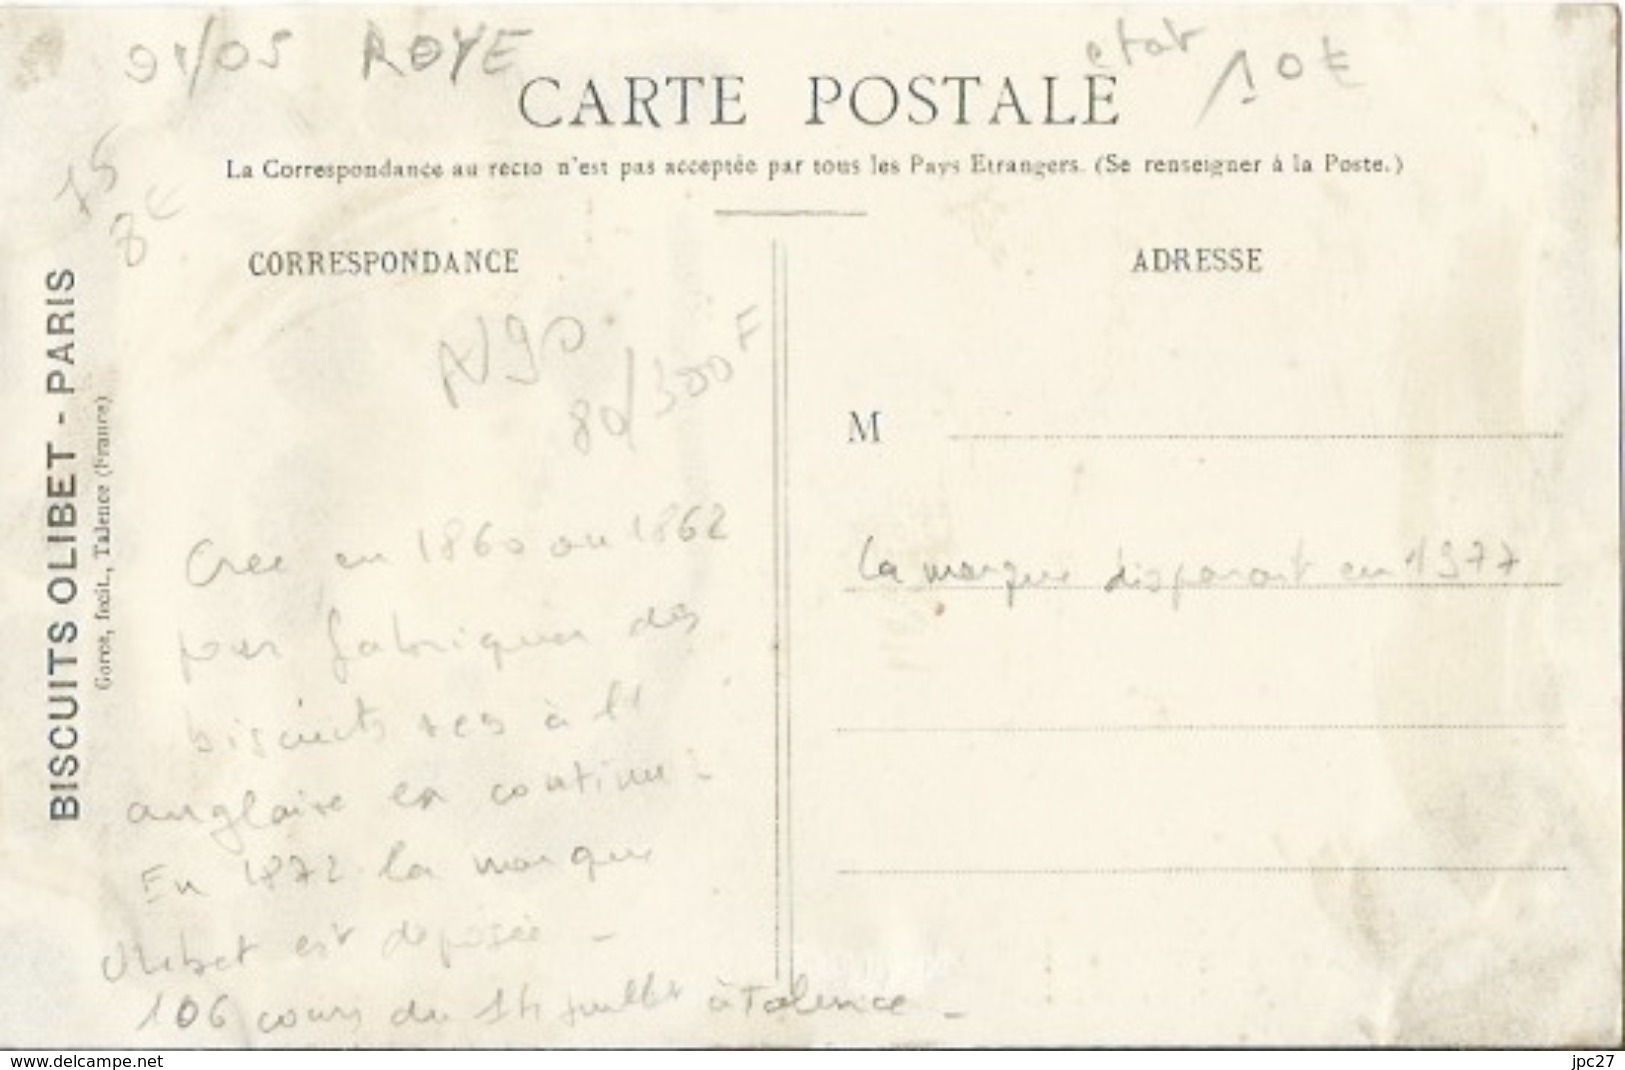 01/05 ROYE
etat 10€
CARTE POSTALE
La Correspondance au recto n'est pas acceptée par tous les Pays Etrangers. (Se renseigner à la Poste.)
15
8€
CORRESPONDANCE
ADRESSE
BISCUITS OLIBET - PARIS
Gorce, fecit., Talence (France)
N90
80/300F
M
Cree en 1860 ou 1862
pour fabriquer des
biscuits secs à l'
anglaise en continu -
En 1872 la marque
Olibet est deposée -
106 cours du 14 juillet à Talence -
la marque disparait en 1977
www.delcampe.net
jpc27